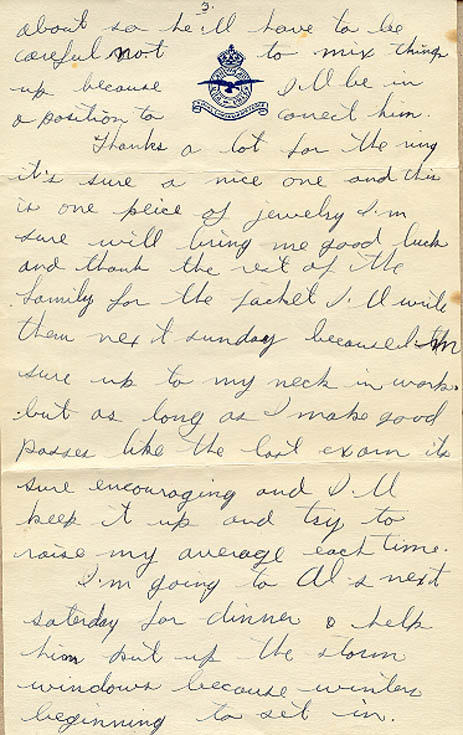 3.
about so he'll have to be
careful not to mix things
up because I'll be in
a position to correct him.
ROYAL CANADIAN AIR FORCE
Thanks a lot for the ring
it's sure a nice one and this
is one peice of jewelry I'm
sure will bring me good luck
and thank the rest of the
family for the jacket I'll write
them next sunday because I'm
sure up to my neck in work.
but as long as I make good
passes like the last exam its
sure encouraging and I'll
keep it up and try to
raise my average each time.
I'm going to Al's next
saterday for dinner & help
him put up the storm
windows because winters
beginning to set in.